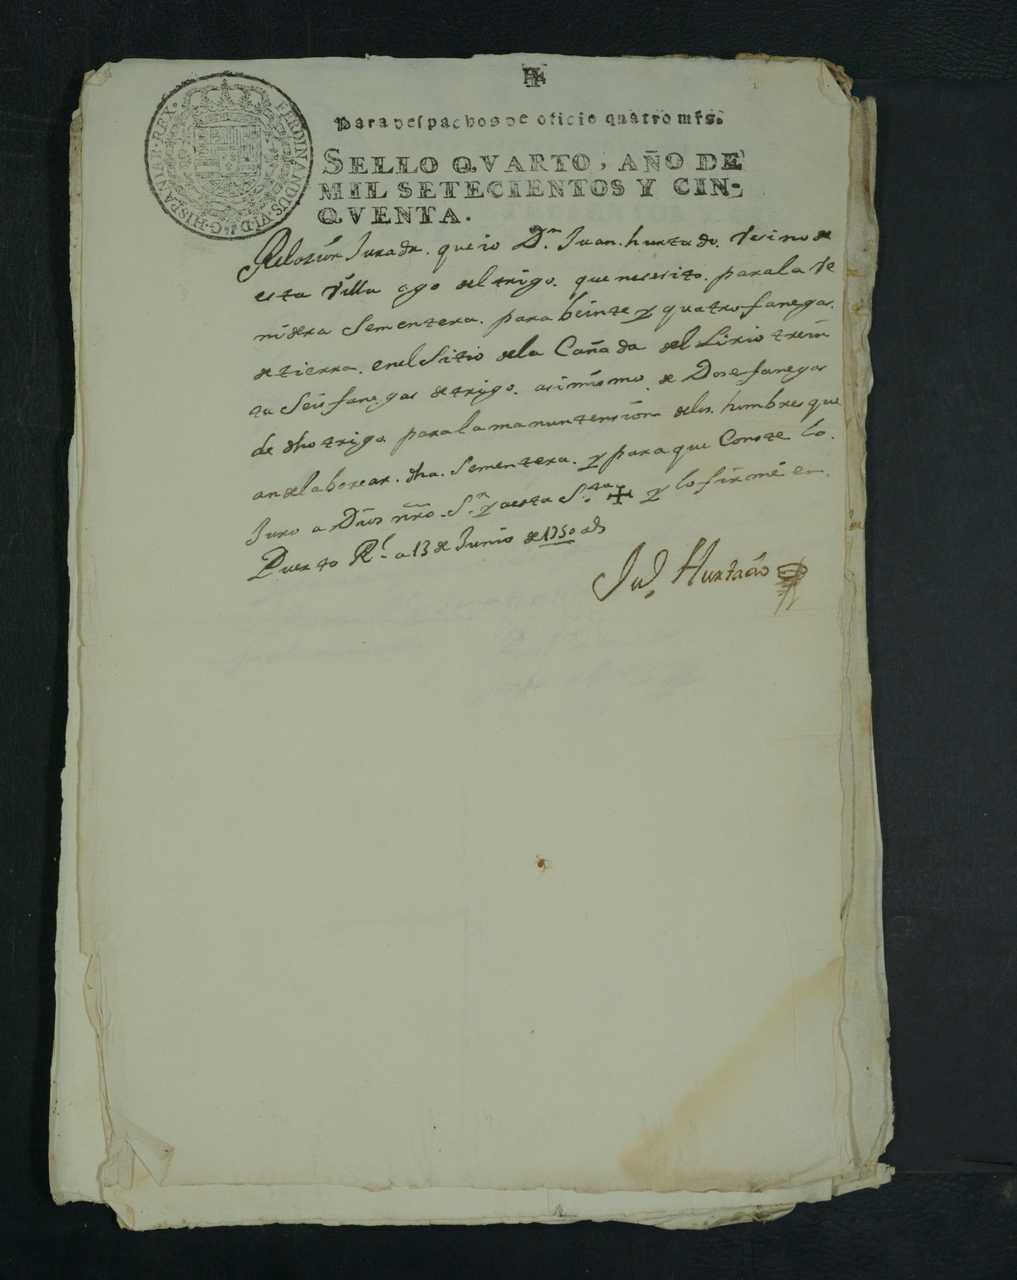 FERDINANDUS·VI·D·G·HISPANIAR·REX·
Para despachos de oficio quatro mrs.
SELLO QVARTO, AÑO DE
MIL SETECIENTOS Y CIN-
QVENTA.
Relasión Jurada. que io Dn. Juan. hurtado. Vesino de
esta Villa ago del trigo. que nesesito. para la Ve
nidera Sementera. para beinte y quatro fanegas.
de tierra. en el Sitio de la Cañada del Lirio trein
ta Seis fanegas de trigo. asimismo. de Dose fanegas
de dho trigo para la manuntension de los. hombres que
an de laborear. dha. Sementera. y para que Conste lo.
Juro a Dios nro. Sr. y a esta Sta. ✝ y lo firmé en
Puerto Rl. a 13 de Junio de 1750 as
Jun. Hurtado